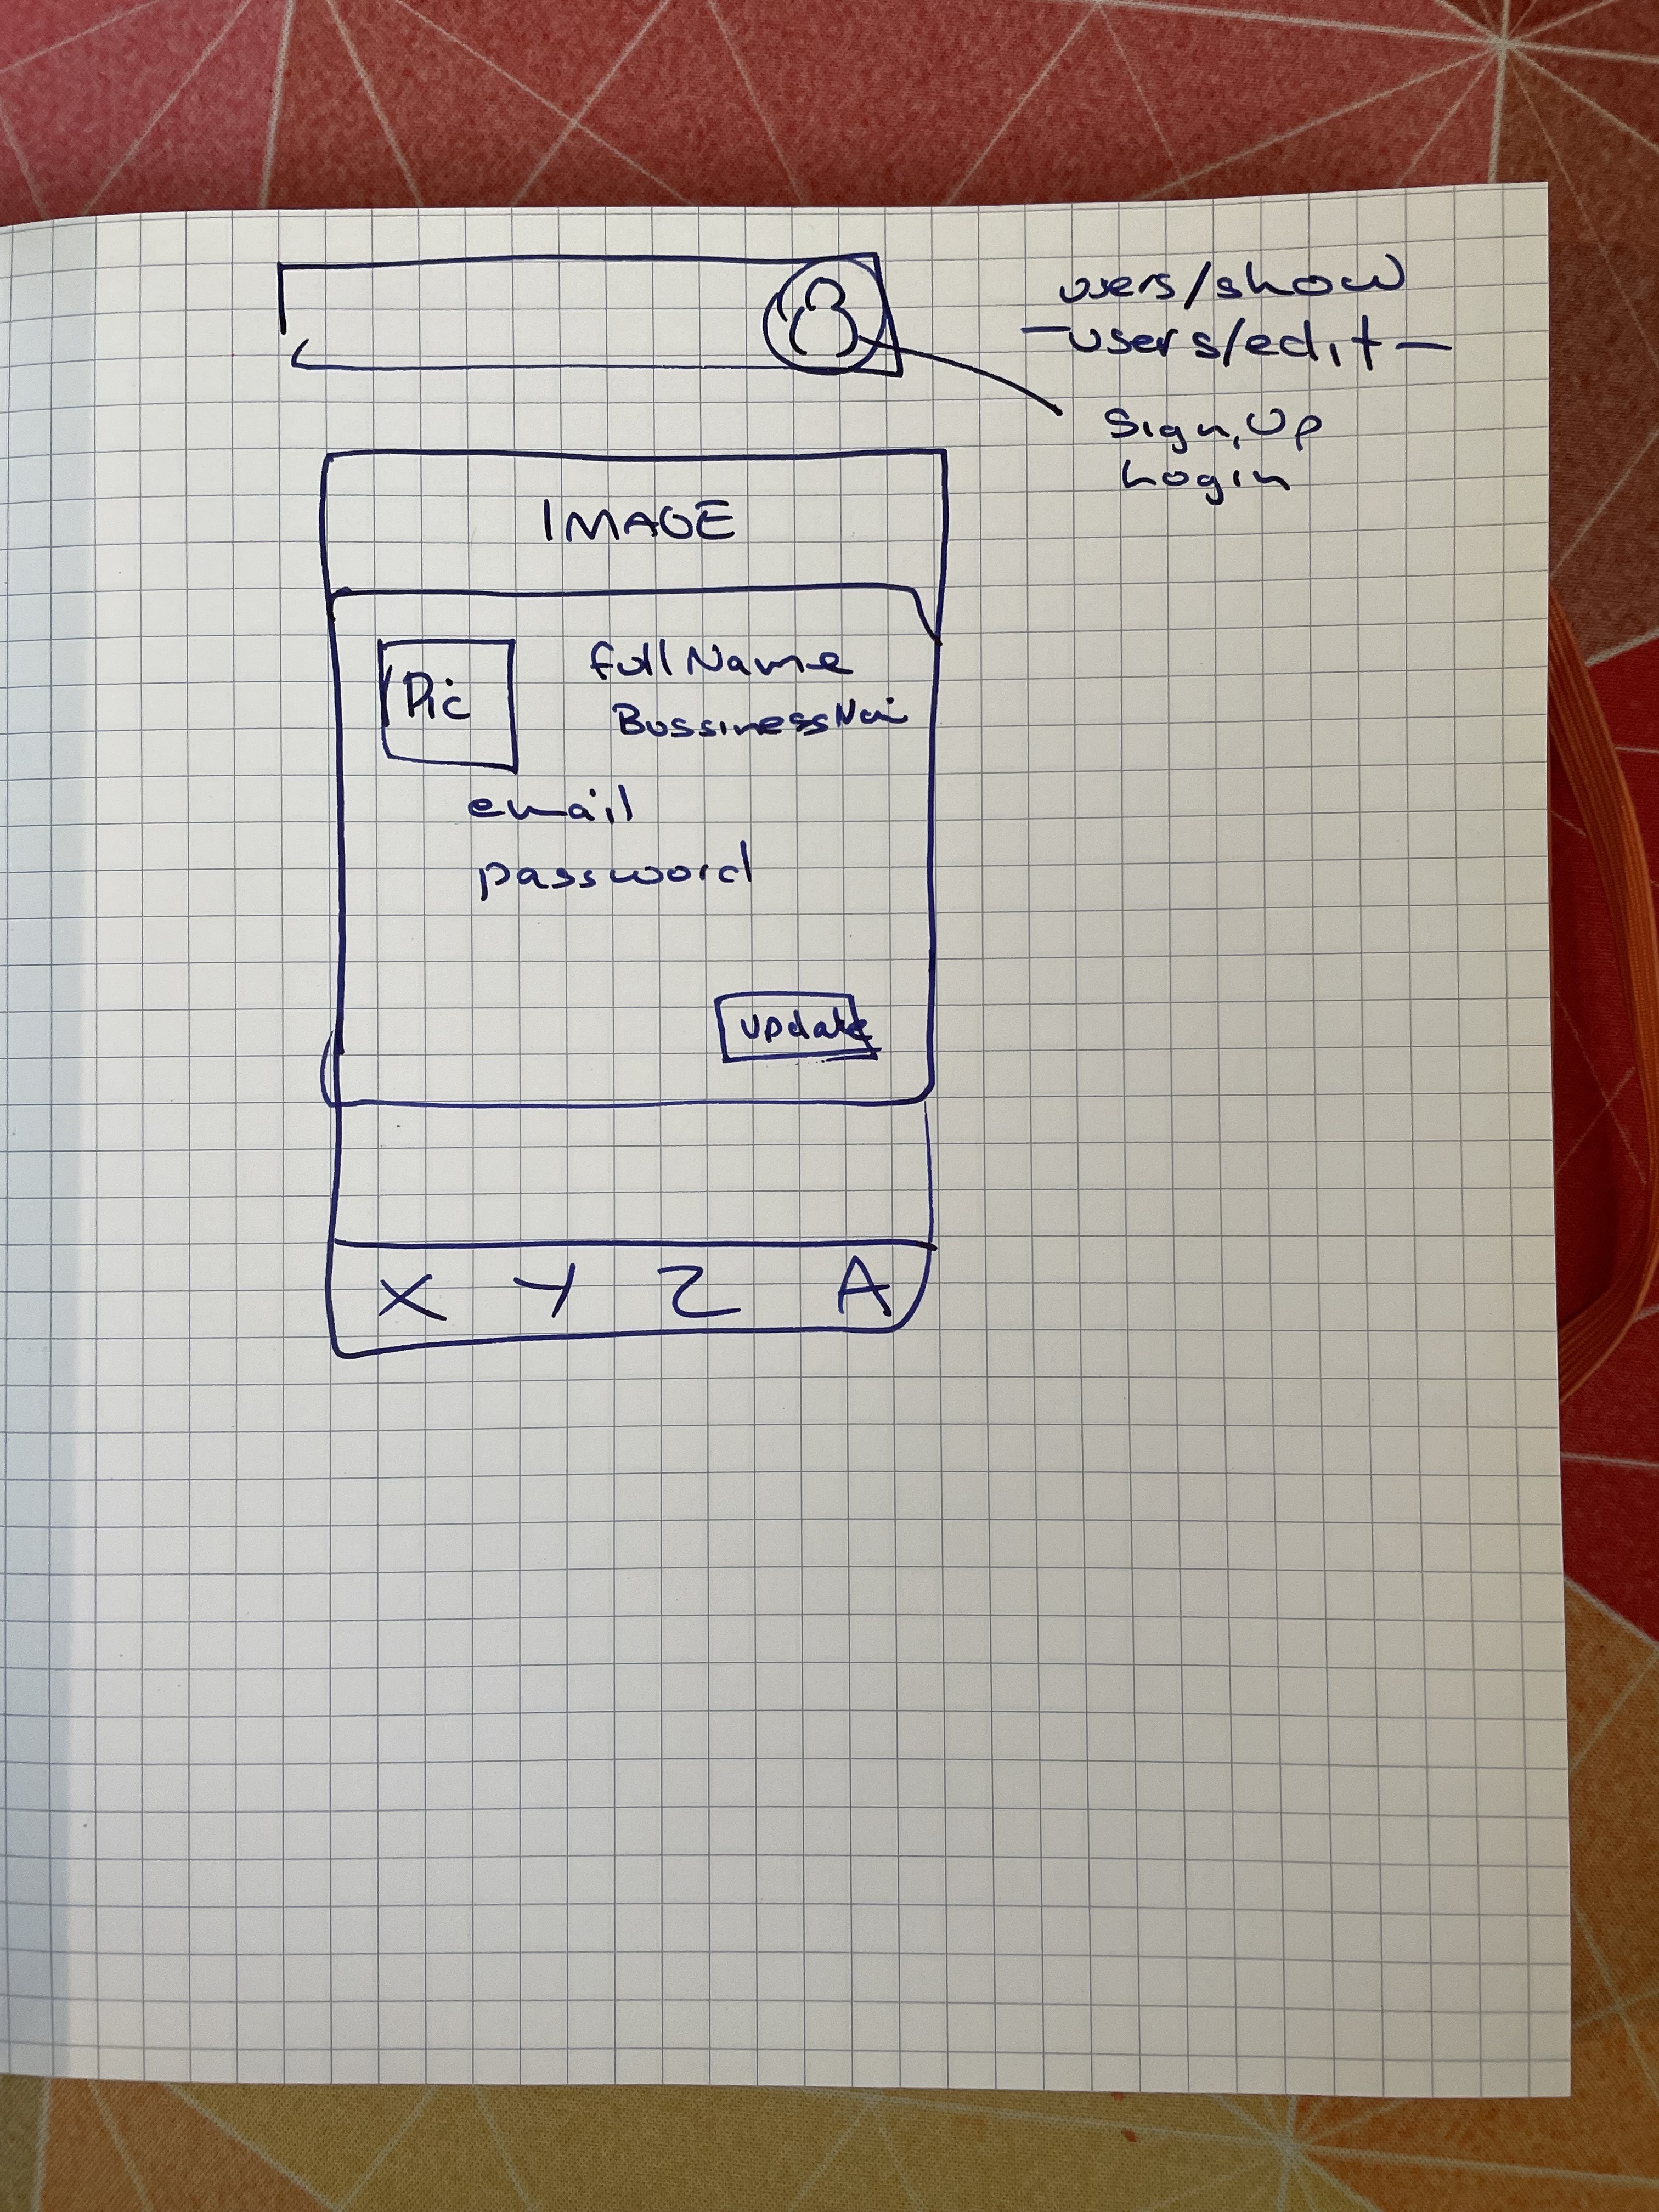 users/show
-users/edit-
Sign Up
Login
IMAGE
Pic
full Name
BussinessNa
email
password
update
X Y Z A